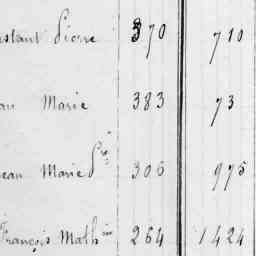 Pierre 370 710
Marie 383 73
Jean Marie 306 975
François Math 264 1424